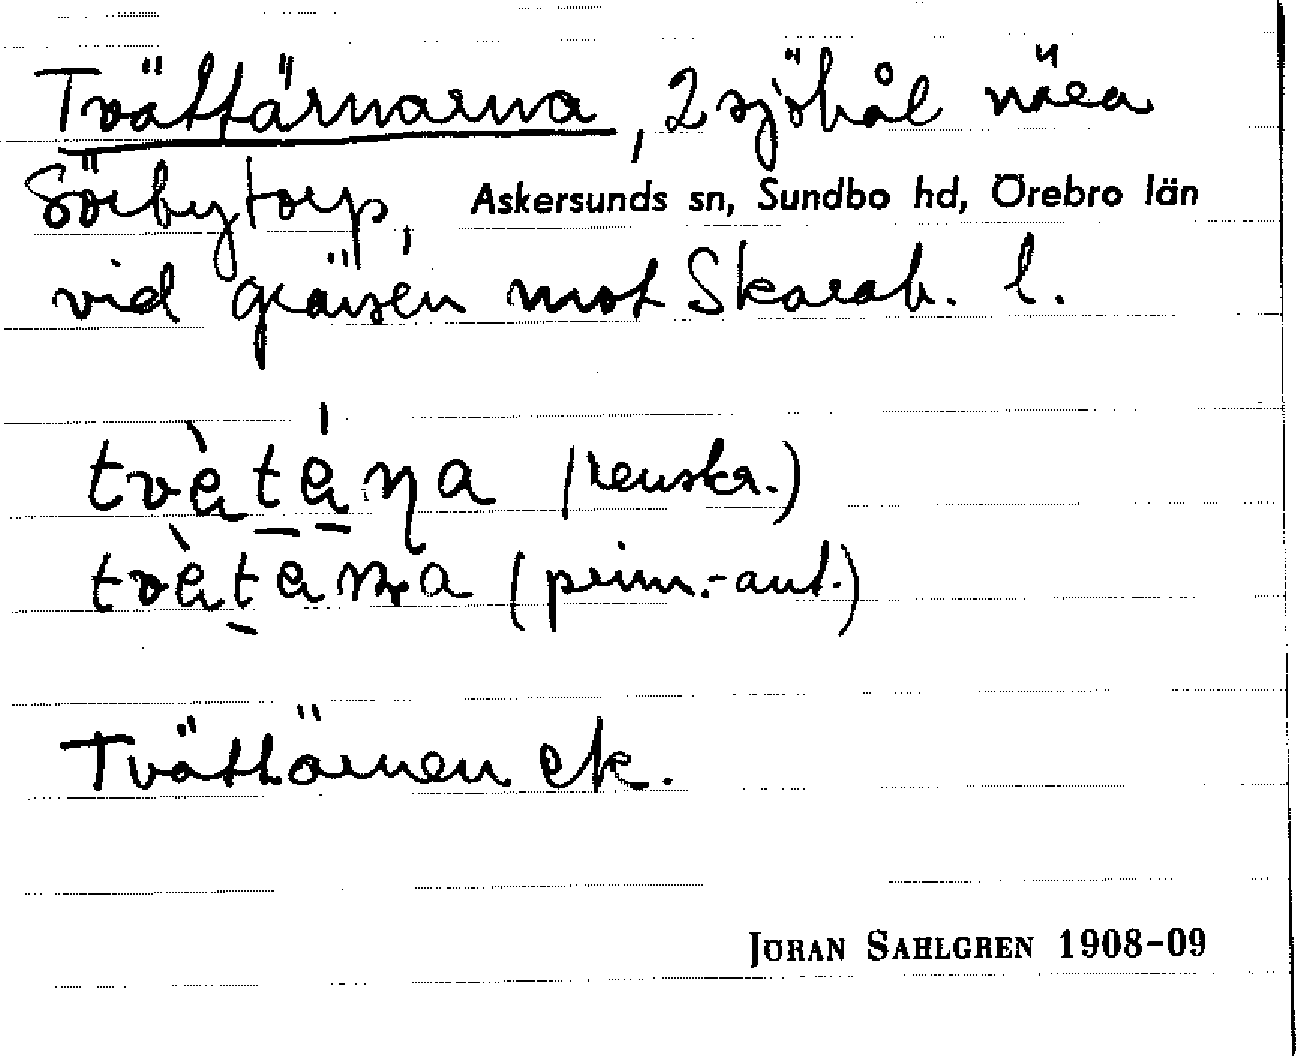 Tvättärnarna, 2 sjöhål nära
Sörbytorp, Askersunds sn, Sundbo hd, Örebro län
vid gränsen mot Skarab. l.
(renskr.)
(prim.-ant.)
Tvättärnen ek.
JÖRAN SAHLGREN 1908-09